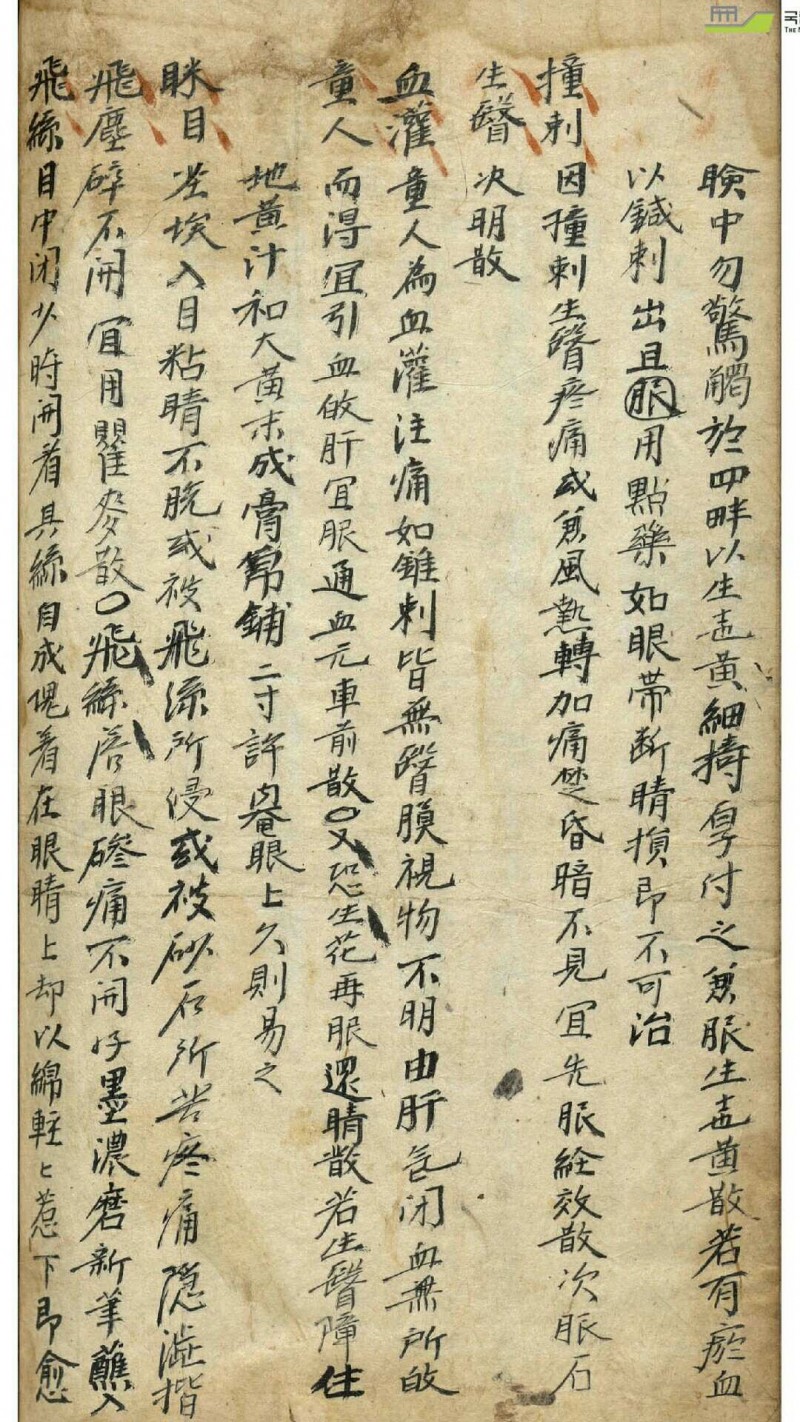 瞼中勿驚觸於四畔以生地黃細擣厚付之兼服生地黃散若有瘀血
以鍼刺出且服用點藥如眼帶断睛損即不可治
撞刺 因撞刺生瞖疼痛或兼風熱轉加痛楚昏暗不見宜先服經效散次服石
生瞖 次明散
血灌 童人為血灌注痛如錐刺皆無瞖膜視物不明由肝氣闭血無所故
童人 而得宜引血故肝宜服通血元車前散〇又恐生花再服還睛散若生瞖障住
地黃汁和大黃末成膏帛鋪二寸許罨眼上久則易之
眯目 塵埃入目粘睛不脫或被飛絲所侵或被砂石所苦疼痛隱澁揩
飛塵 碎不開宜用瞿麥散〇飛絲落眼磣痛不開好墨濃磨新筆蘸入
飛絲 目中闭少時開看其絲自成塊着在眼睛上却以綿輕〻惹下即愈